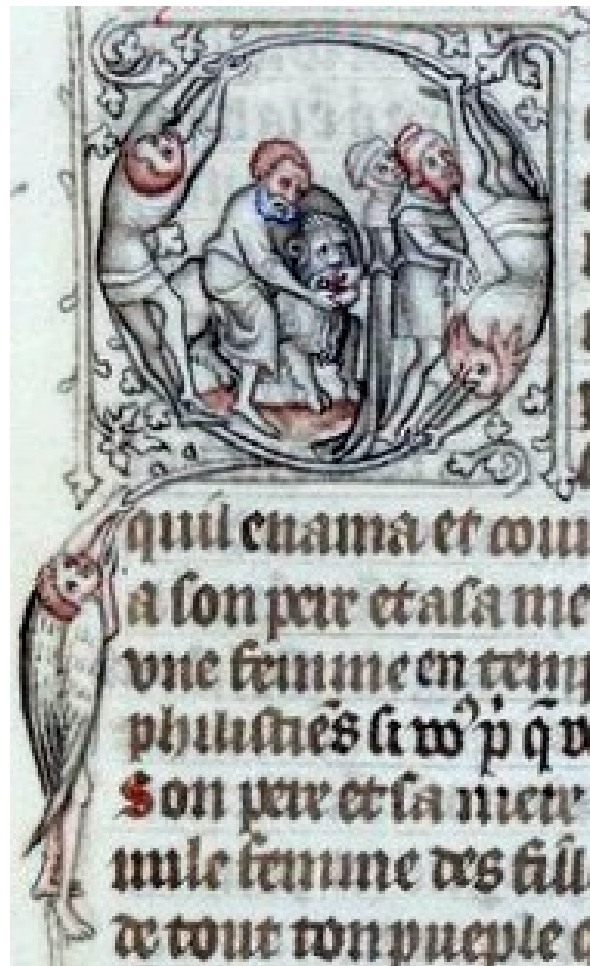 quil enama et couu
a son peir et a sa me
vne femme en temp
philistiēs si wͦ p̄ q̄ v
son pere et sa mere
nule femme des fill
de tout ton pueple